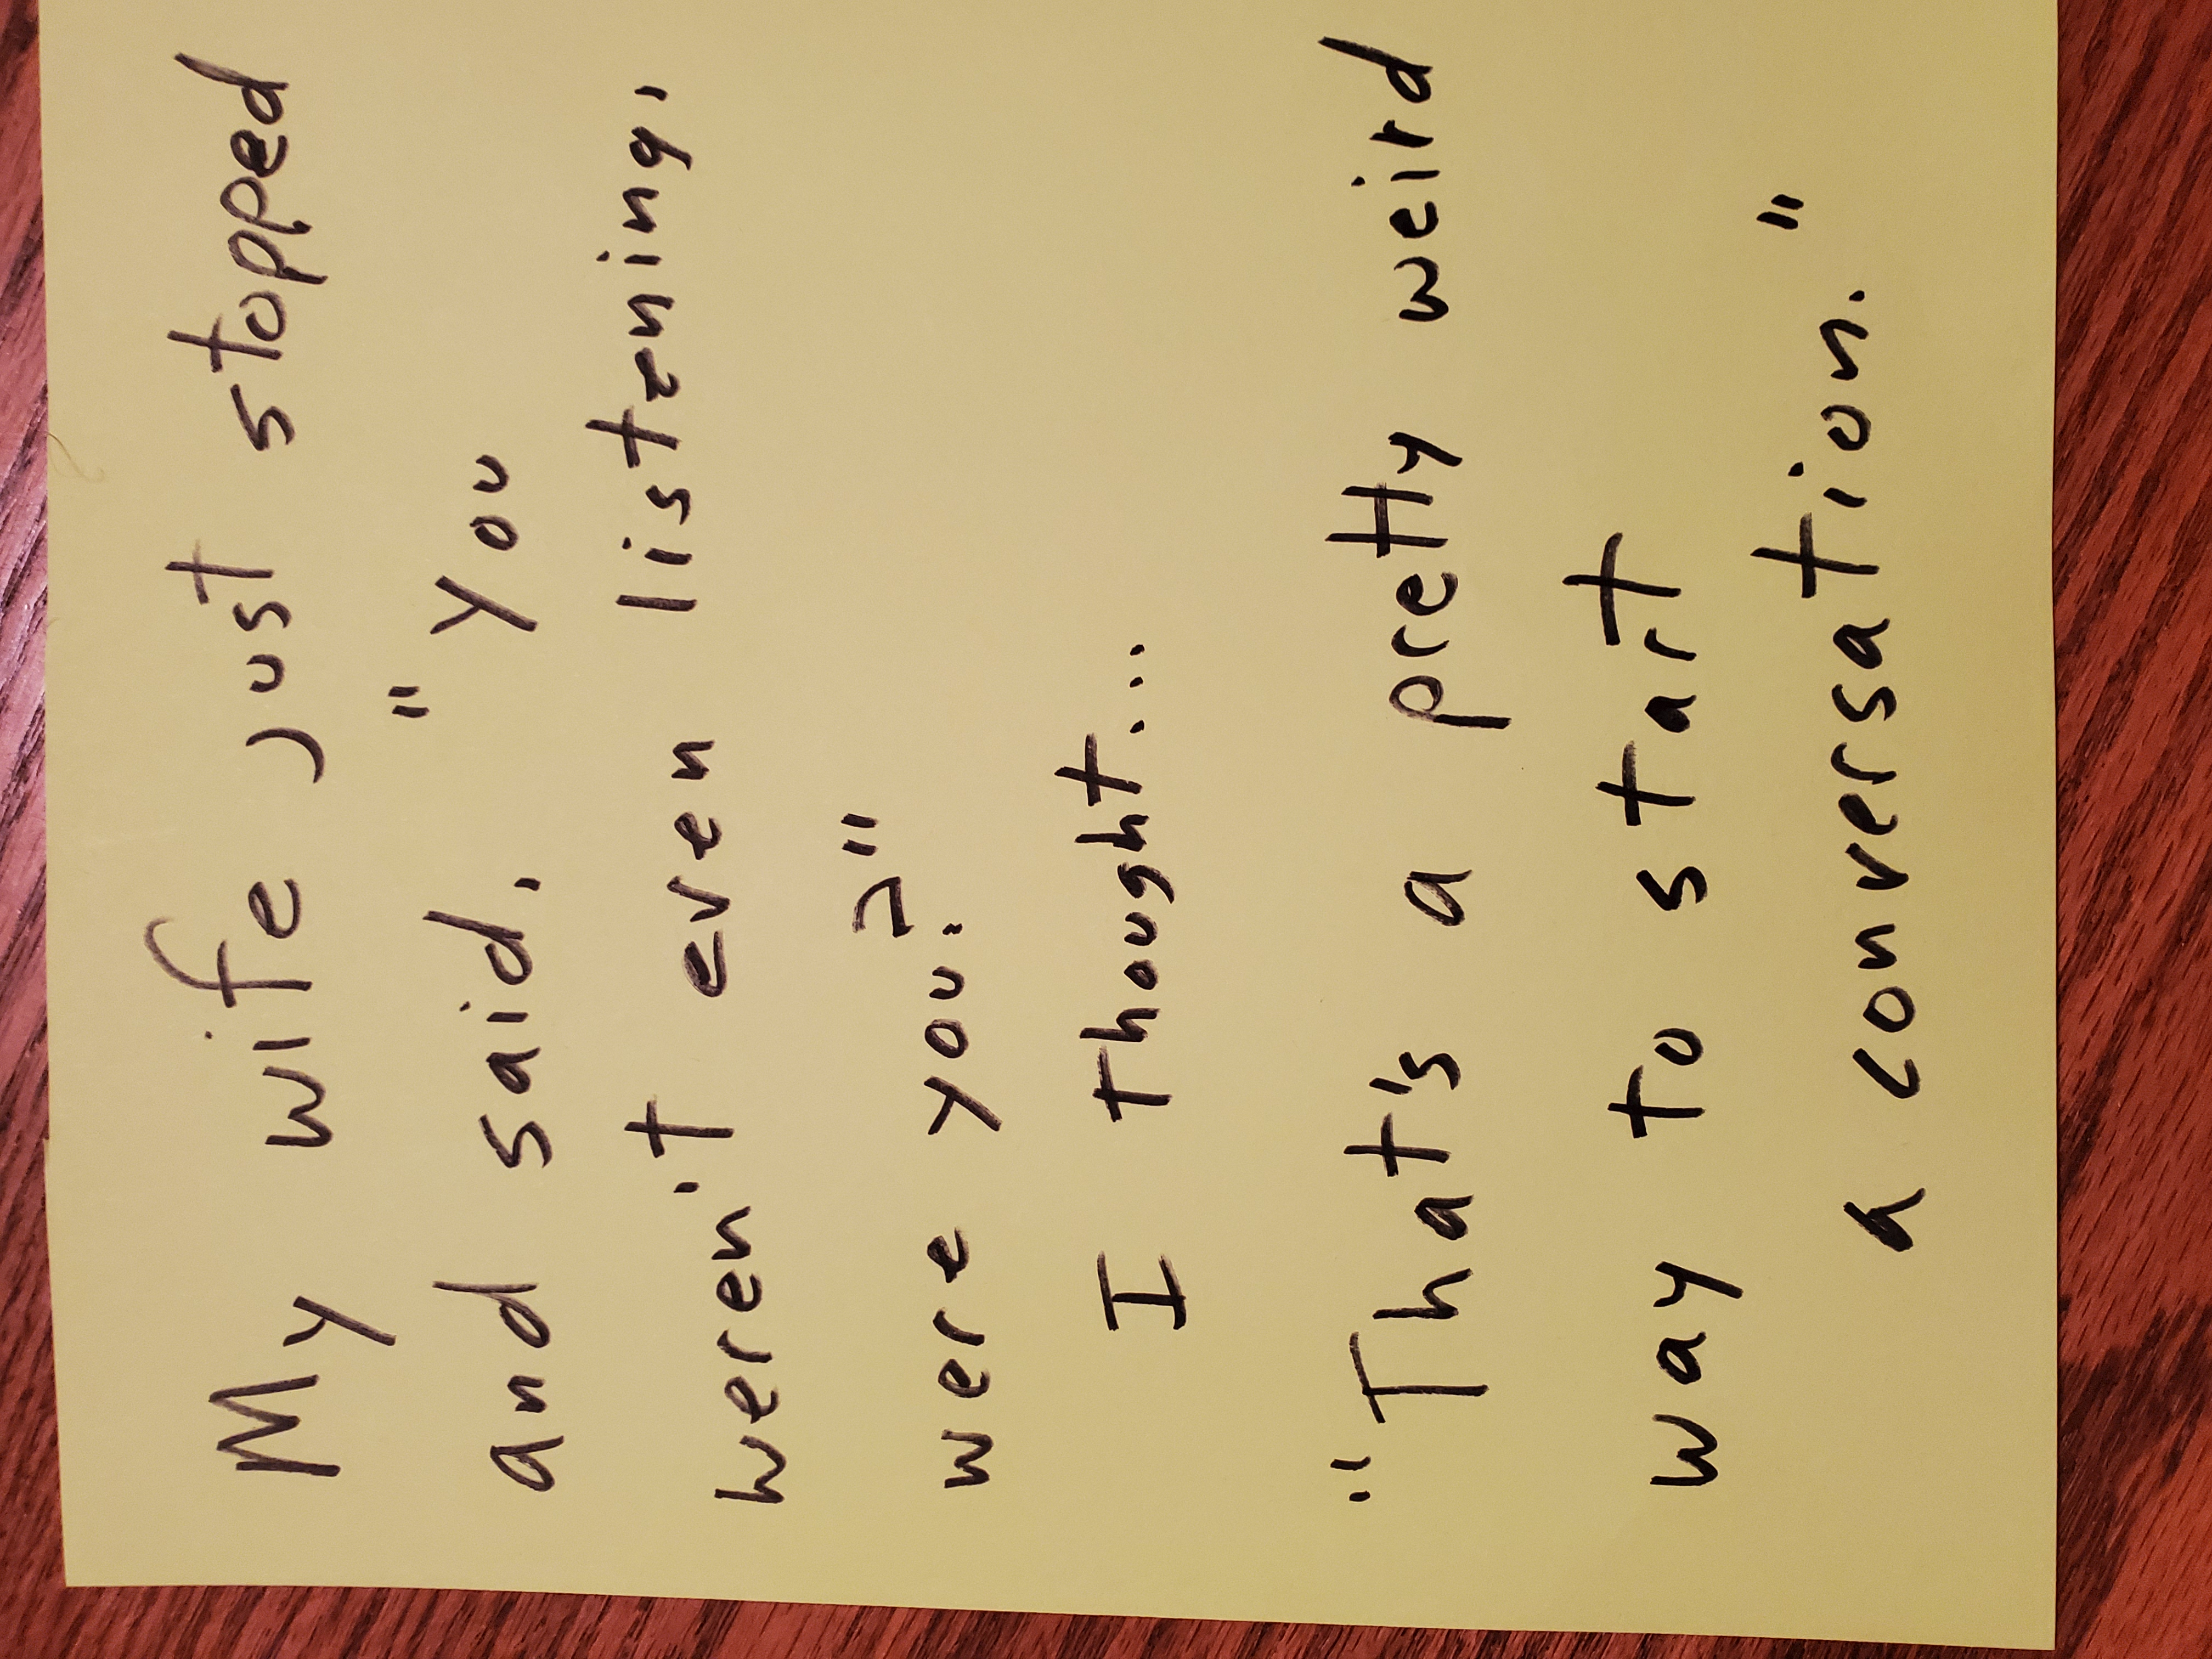 My wife just stopped
and said, "You
weren't even listening,
were you?"
I thought...
"That's a pretty weird
way to start
a conversation."